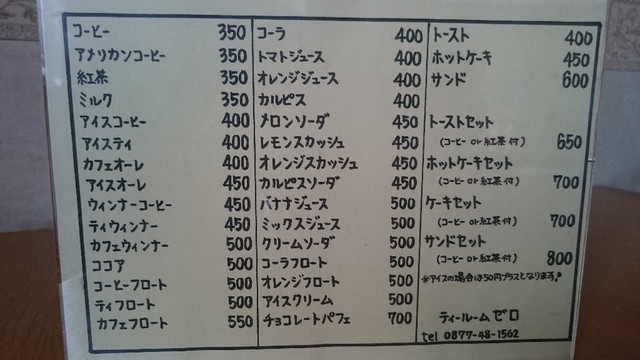 コーヒー 350
アメリカンコーヒー 350
紅茶 350
ミルク 350
アイスコーヒー 400
アイスティ 400
カフェオーレ 400
アイスオーレ 450
ウィンナーコーヒー 450
ティウィンナー 450
カフェウィンナー 500
ココア 500
コーヒーフロート 500
ティフロート 500
カフェフロート 550
コーラ 400
トマトジュース 400
オレンジジュース 400
カルピス 400
メロンソーダ 450
レモンスカッシュ 450
オレンジスカッシュ 450
カルピスソーダ 450
バナナジュース 500
ミックスジュース 500
クリームソーダ 500
コーラフロート 500
オレンジフロート 500
アイスクリーム 500
チョコレートパフェ 700
トースト 400
ホットケーキ 450
サンド 600
トーストセット
(コーヒー or 紅茶付) 650
ホットケーキセット
(コーヒー or 紅茶付) 700
ケーキセット
(コーヒー or 紅茶付) 700
サンドセット
(コーヒー or 紅茶付) 800
※アイスの場合は50円プラスとなります!
ティールーム ゼロ
tel 0877-48-1562